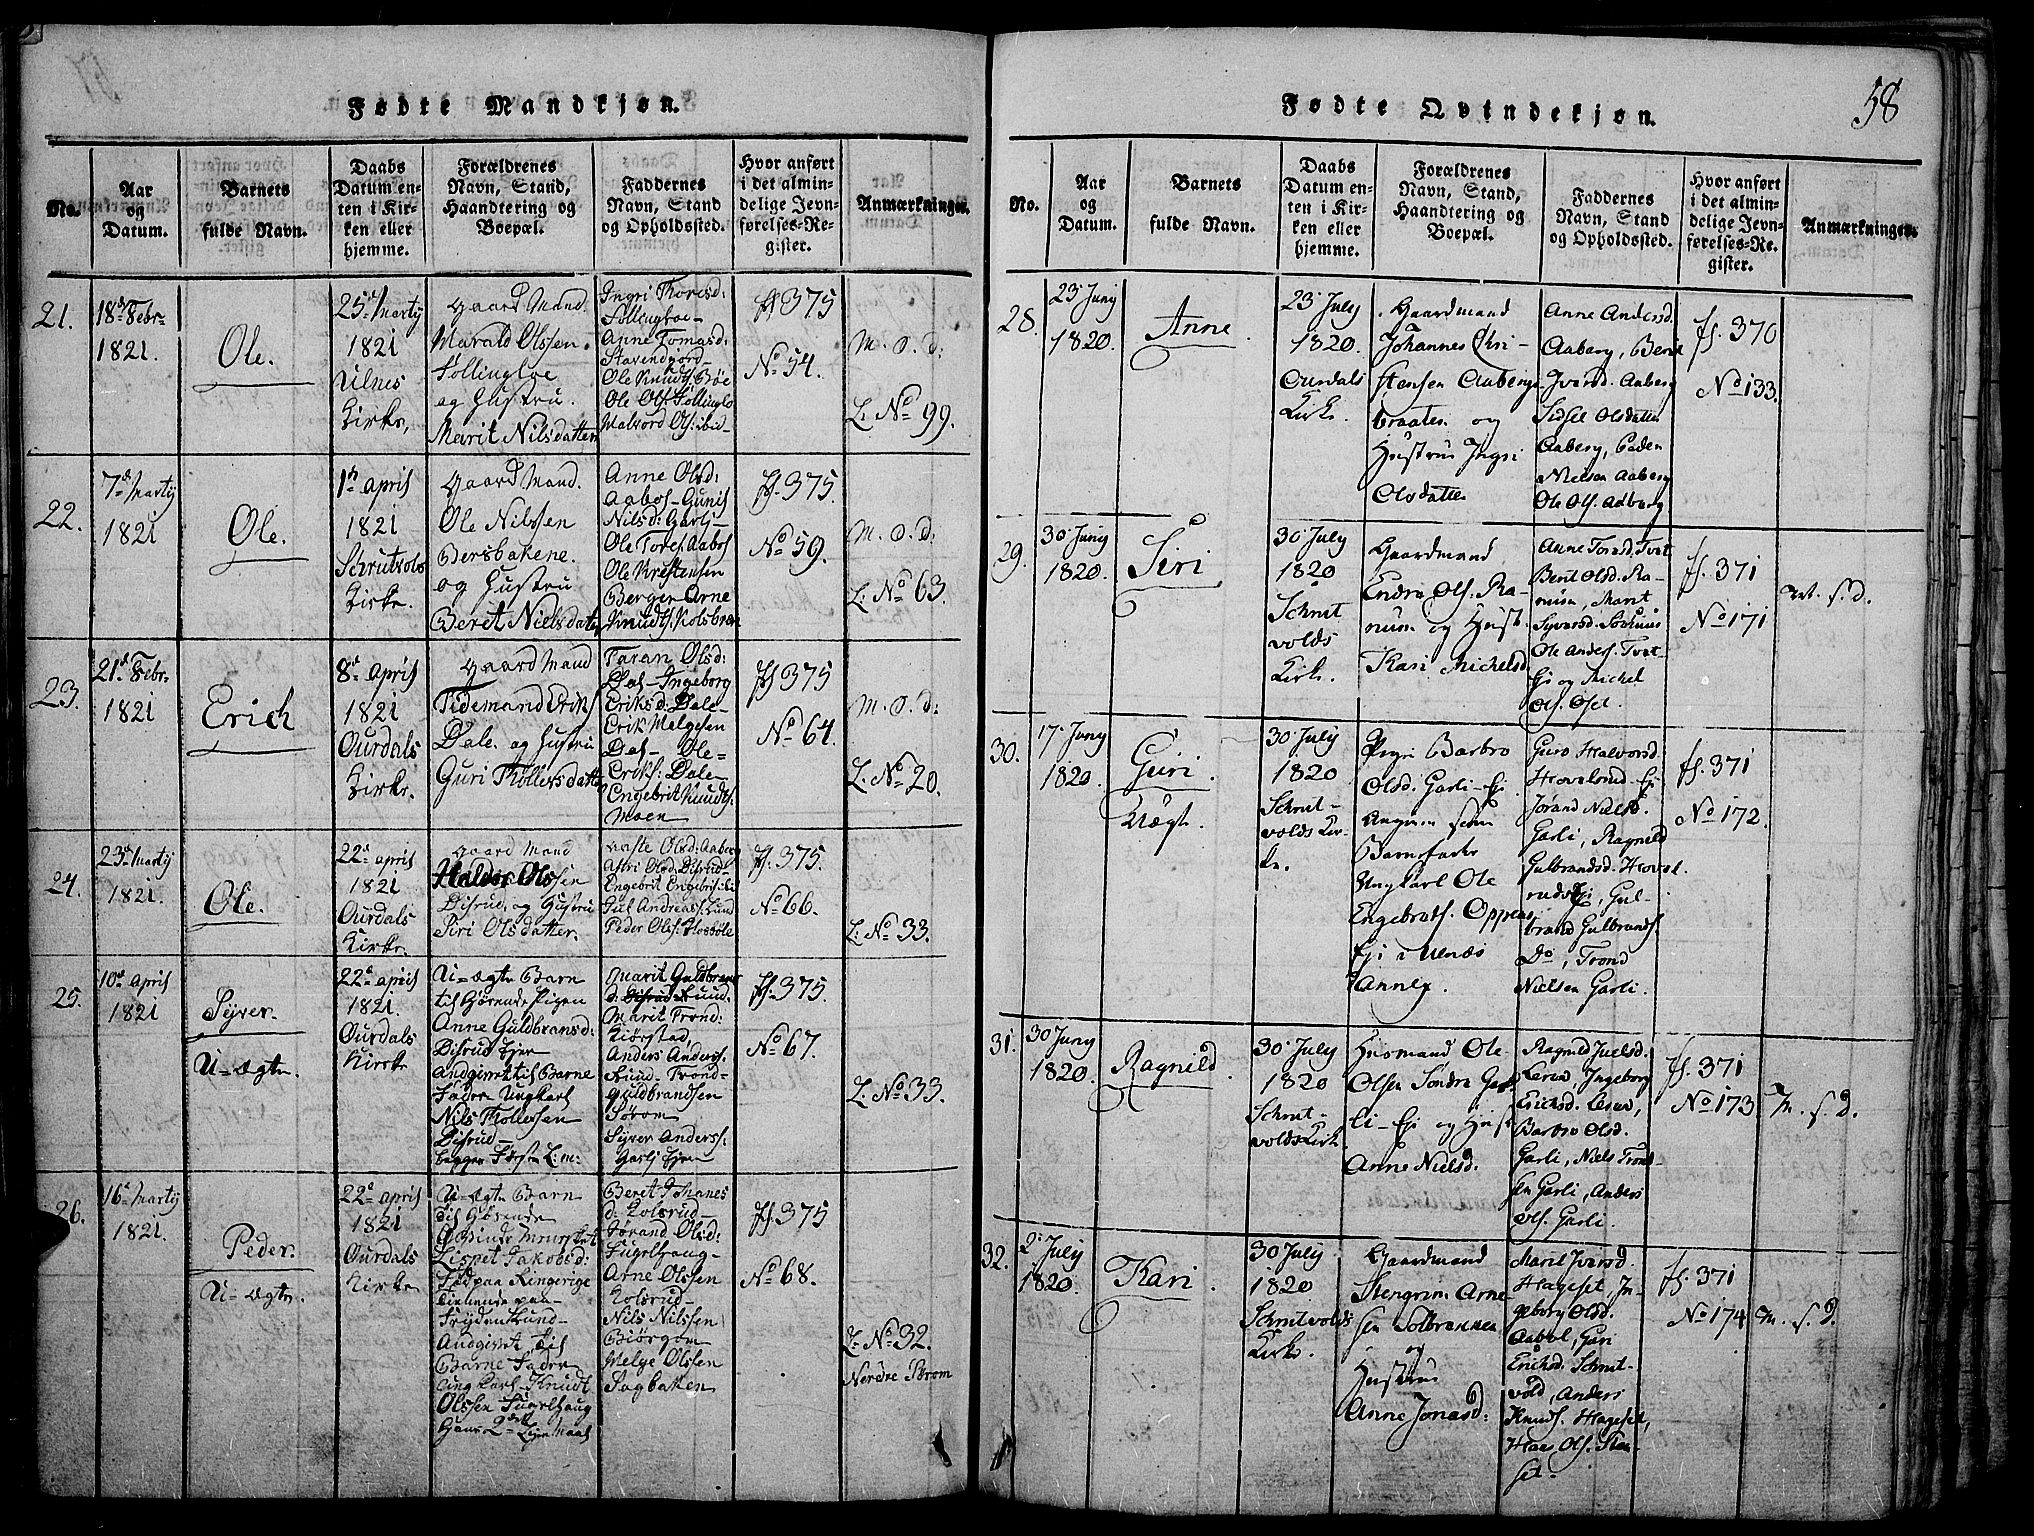 Fødte Mandkjøn.
No.
Aar
og
Datum.
Barnets
fulde Navn.
Daabs
Datum en-
ten i Kir-
ken eller
hjemme.
Forældrenes
Navn, Stand,
Haandtering og
Boepæl.
Faddernes
Navn, Stand
og Opholdssted.
Hvor anført
i det almin-
delige Jevn-
førelses-Re-
gister.
Anmærkninger.
21.
18de Febr.
1821.
Ole.
25de Martij
1821
Ulnes
Kirke,
Gaard Mand
Harald Olssen
Føllingboe
og Hustru.
Marit Nilsdatter
Ingri Thoresd:
Føllingboe-
Anne Tomasd:
Ole Knuds. Bøe
Ole Ols. Føllingb
Halvord Ols: ibid
fs 375
No 54.
M. O. d:
L. No 99.
22.
7de Martij
1821
Ole.
1te April
1821
Schrutvols
Kirke.
Gaard Mand.
Ole Nilssen
Bersbakene.
og Hustru
Beret Nielsdatter
Anne Olsd:
Aabol-Gunil
Nilsd: Garlj-
Ole Tores. Aabol
Ole Krestensen
Berger Arne
Knudts. Kolsbrøn
fs. 375.
No 59.
M. O. d:
L: No 63.
23.
21de Febr.
1821
Erich
8de April
1821
Ourdals
Kirke.
Gaard Mand
Tidemand Eriks
Dale. og Hustru
Guri Thollersdatter
Taran Olsd:
Dal-Ingeborg
Eriksd: Dale-
Erik Helgesen
Dal- Ole-
Eriks: Dale-
Engebrit Knudts.
Moen
fs 375
No 64.
M. O. d:
L. No 20.
24.
23de Martij
1821.
Ole.
22de April
1821
Ourdals
Kirke.
Gaard Mand
Halder Olssen
Disrud. og Hustru
Siri Olsdatter.
Aaste Olsd: Aaberg
Astri Olsd. Disrud-
Engebrit Engebris: ib
Jul Andreas: Lund
Peder Ols: Fosbøle
fs. 375.
No 66.
L: No 33.
25.
10de April
1821
Syver.
U-ægte.
22de April
1821.
Ourdals
Kirke
U-ægte Barn
til Hørende Pigen
Anne Guldbransd:
Disrud Ejer
Andgivet til Barne
Fader Ungkarl
Nils Thollessen
Disrud-
begges Første L: m:
Marit Guldbrans
d: Disrud Lund.
Marit Trond:
Kiørstad,
Anders Anderss.
Lund- Trond-
Guldbrandsen
Sørom-
Syver Anderss.
Garlj Ejer
fs. 375.
No 67.
L. No 33.
26.
16de Martij
1821.
Peder.
U-ægte.
22de April
1821
Ourdals
Kirke
U-ægte Barn
til Hørende
Lispet Jakobsd:
Fød paa Ringerige
tienende paa
Frydenlund-
Andgivet til
Barne Fader
Ung Karl Knudt
Olssen Fuglhaug
hans 2de Lejermaal
Beret Johanes
d: Kolsrud-
Jørand Olsd:
Fuglhaug-
Arne Olssen
Kolsrud-
Nils Nilssen
Biørgom-
Helge Olssen
Sagbaken
fs. 375
No 68.
L: No 32.
Nordre Brom
Fødte Qvindekjøn.
58
No.
Aar
og
Datum.
Barnets
fulde Navn.
Daabs
Datum en-
ten i Kir-
ken eller
hjemme.
Forældrenes
Navn, Stand,
Haandtering og
Boepæl.
Faddernes
Navn, Stand
og Opholdssted.
Hvor anført
i det almin-
delige Jevn-
førelses-Re-
gister.
Anmærkninger.
28.
23 Juny
1820.
Anne
23 July
1820.
Ourdals
Kirk.
Gaardmand
Johannes Chri-
stensen Aabergs
braaten og
Hustrue Ingri
Olsdatter
Anne Andersd.
Aaberg, Berit
Iversd. Aaberg
Sidsel Olsdatter
Aaberg, Peder
Nielsen Aaberg
Ole Ols. Aaberg
fs. 370
No 133.
29.
30 Juny
1820.
Siri
30 July
1820
Schrut
volds
Kirk.
Gaardmand
Endre Ols. Ra-
num og Hust.
Kari Michelsd
Anne Torsd. Tvet
Berit Olsd. Ra-
num, Marit
Syversd.
Ole Anders. Tvet-
Ej og Michel
Ols. Oset.
fs. 371
No 171
M. s. d.
30.
17 Juny
1820.
Guri.
Uægt.
30 July
1820
Schrut-
volds Kir-
ke.
Pige Barbro
Olsd. Garli-Ej
Angiven som
Barnefader
Ungkarl Ole
Engebrets. Oppens
Ej i Ulnæs
Annex.
Guro Halvorsd
Hovelsrud-Ej
Jørand Nielsd.
Garli, Ragnild
Gulbrandsd. Hovels
ruds Ej, Gul-
brand Gulbrands.
Do, Trond
Nielsen Garli.
fs. 371
No 172.
31.
30 Juny
1820.
Ragnild.
30 July
1820
Schrut-
volds Kirk.
Husmand Ole
Olsen Søndre Gar
li-Ej og Hust
Anne Nielsd.
Ragnild Juelsd.
Lerud, Ingeborg
Erichsd. Lerud,
Barbro Olsd.
Garli, Niels Trond-
sen Garli, Anders
Ols. Garli.
fs. 371
No 173
M. s. d.
32.
2 July
1820.
Kari.
30 July
1820
Schrutvolds
Kirk.
Gaardmand
Stengrim Arne-
sen Solbrekken
og
Hustrue
Anne Jonasd:
Marit Iversd.
Hageset, In-
geborg Olsd.
Aabol, Guri
Erichsd. Schrut-
vold, Anders
Knuds. Hageset,
Haas Ols. Sten-
set.
fs. 371
No 174
M. s. d.